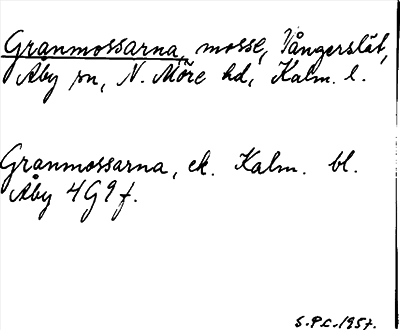 Granmossarna, mosse, Vångerslät,
Åby sn, N. Möre hd, Kalm. l.
Granmossarna, ek. Kalm. bl.
Åby 4G9f.
S.P.L. 1957.